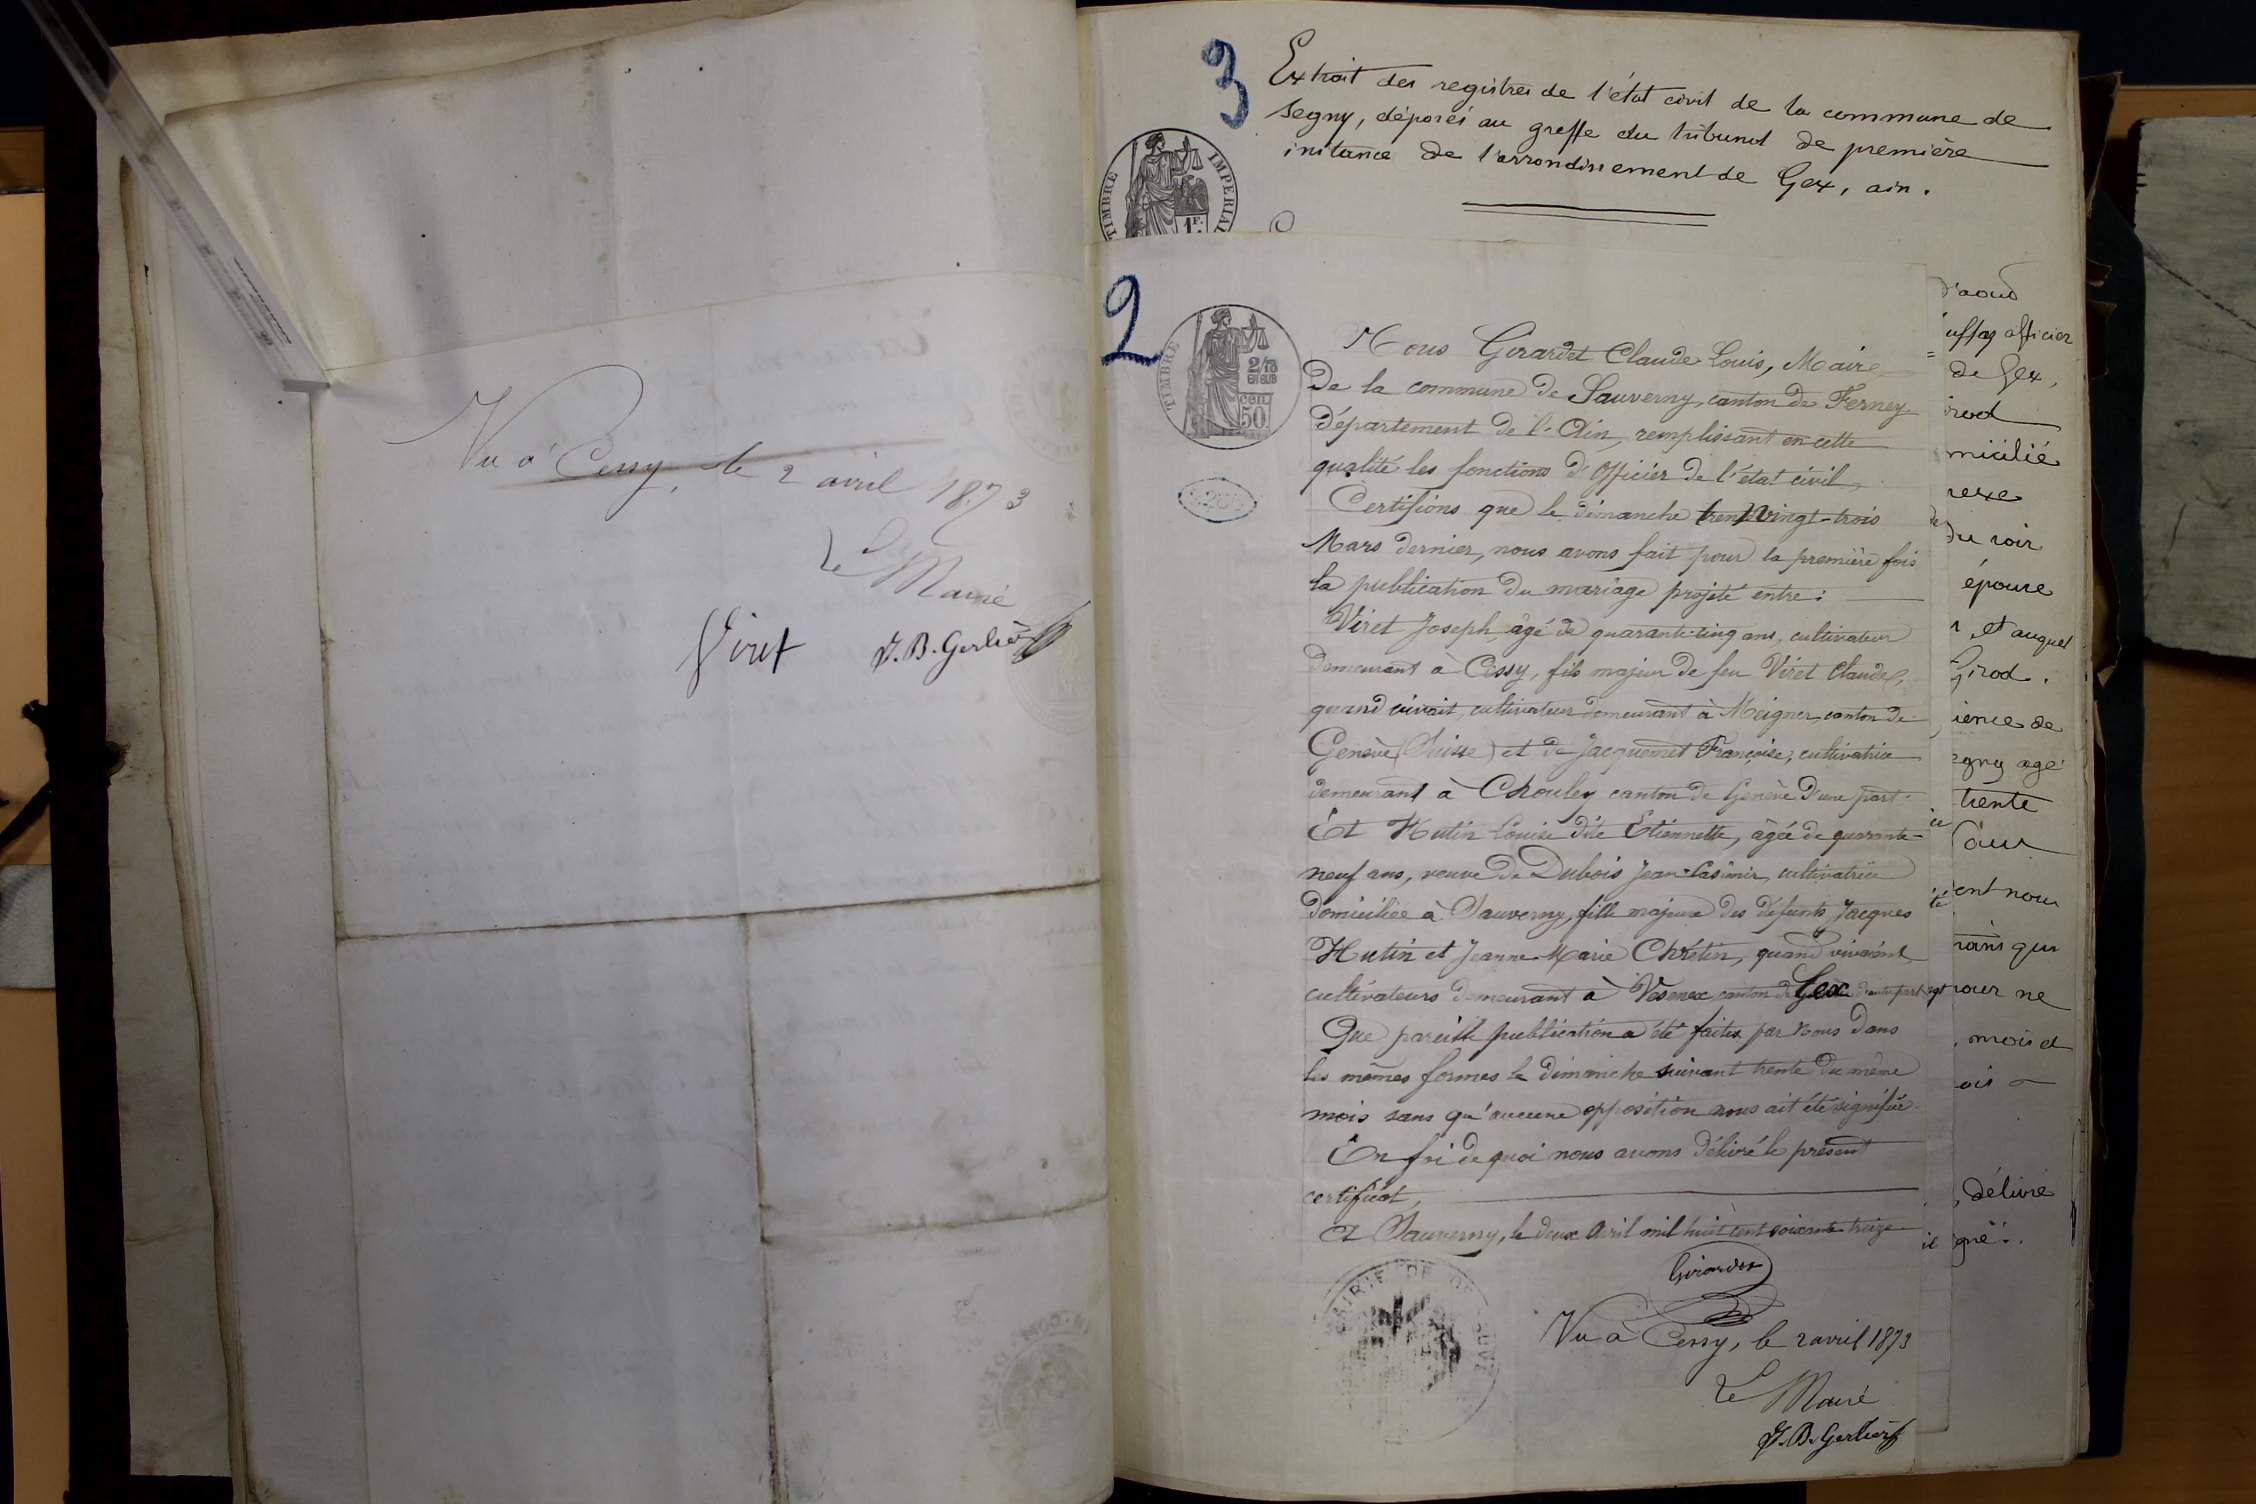 Vu à Cessy, le 2 avril 1873
Le Maire
Viret J. B. Gerlier
3
Extrait des registres de l'état civil de la commune de
Segny, déposés au greffe du tribunal de première
instance de l'arrondissement de Gex, ain.
TIMBRE IMPERIAL
1F.
2
TIMBRE
2/10
EN SUS
CEN.
50
Nous Girardet Claude Louis, Maire
De la commune de Sauverny, canton de Ferney
Département de l'Ain, remplissant en cette
qualité les fonctions d'officier de l'état civil,
Certifions que le dimanche vingt-trois
Mars dernier, nous avons fait pour la première fois
la publication du mariage projeté entre :
Viret Joseph, âgé de quarante-cinq ans, cultivateur
demeurant à Cessy, fils majeur de feu Viret Claude,
quand vivait, cultivateur demeurant à Meigner, canton de
Genève (Suisse) et de Jacquemet Françoise, cultivatrice
demeurant à Chouley canton de Genève d'une part.
Et Hutin Louise dite Etiennette, âgée de quarante-
neuf ans, veuve de Dubois Jean-Casimir, cultivatrice
domiciliée à Sauverny, fille majeure des défunts Jacques
Hutin et Jeanne-Marie Chrétin, quand vivaient
cultivateurs demeurant à Vesenex canton de Gex d'autre part
Que pareille publication a été faites par nous dans
les mêmes formes le dimanche suivant trente du même
mois sans qu'aucune opposition nous ait été signifiée.
En foi de quoi nous avons délivré le présent
certificat,
A Sauverny, le deux Avril mil huit cent soixante treize
Girardet
Vu à Cessy, le 2 avril 1873
Le Maire
J. B. Gerlier
d'aoud
officier
de Gex,
irod
micilié
du soir
épouse
et auquel
Girod.
ience de
egny agé
trente
ent nous
pour ne
, mois et
ois
, délivré
igné.